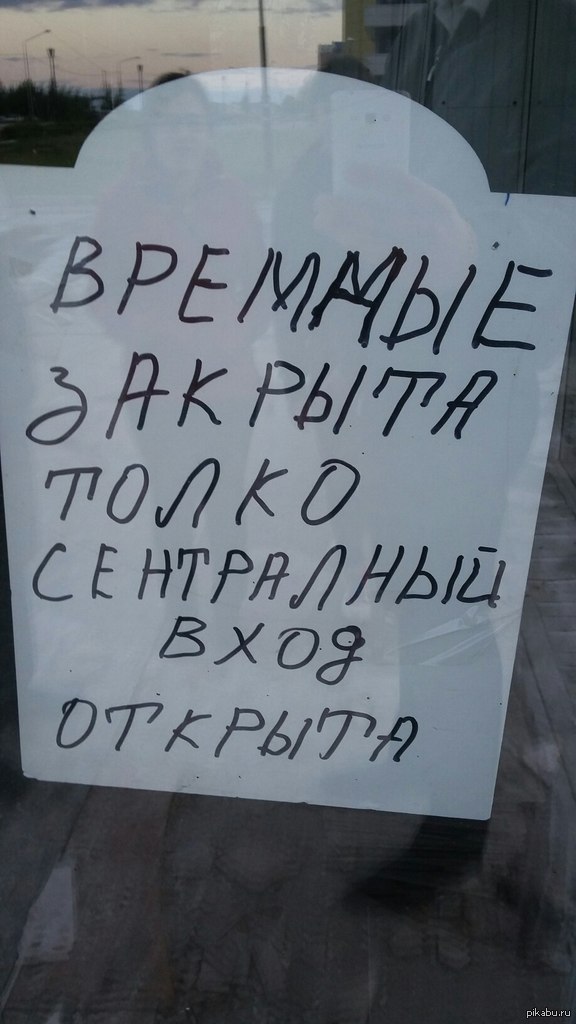 ВРЕММЫЕ
ЗАКРЫТА
ТОЛКО
СЕНТРАЛНЫЙ
ВХОД
ОТКРЫТА
pikabu.ru